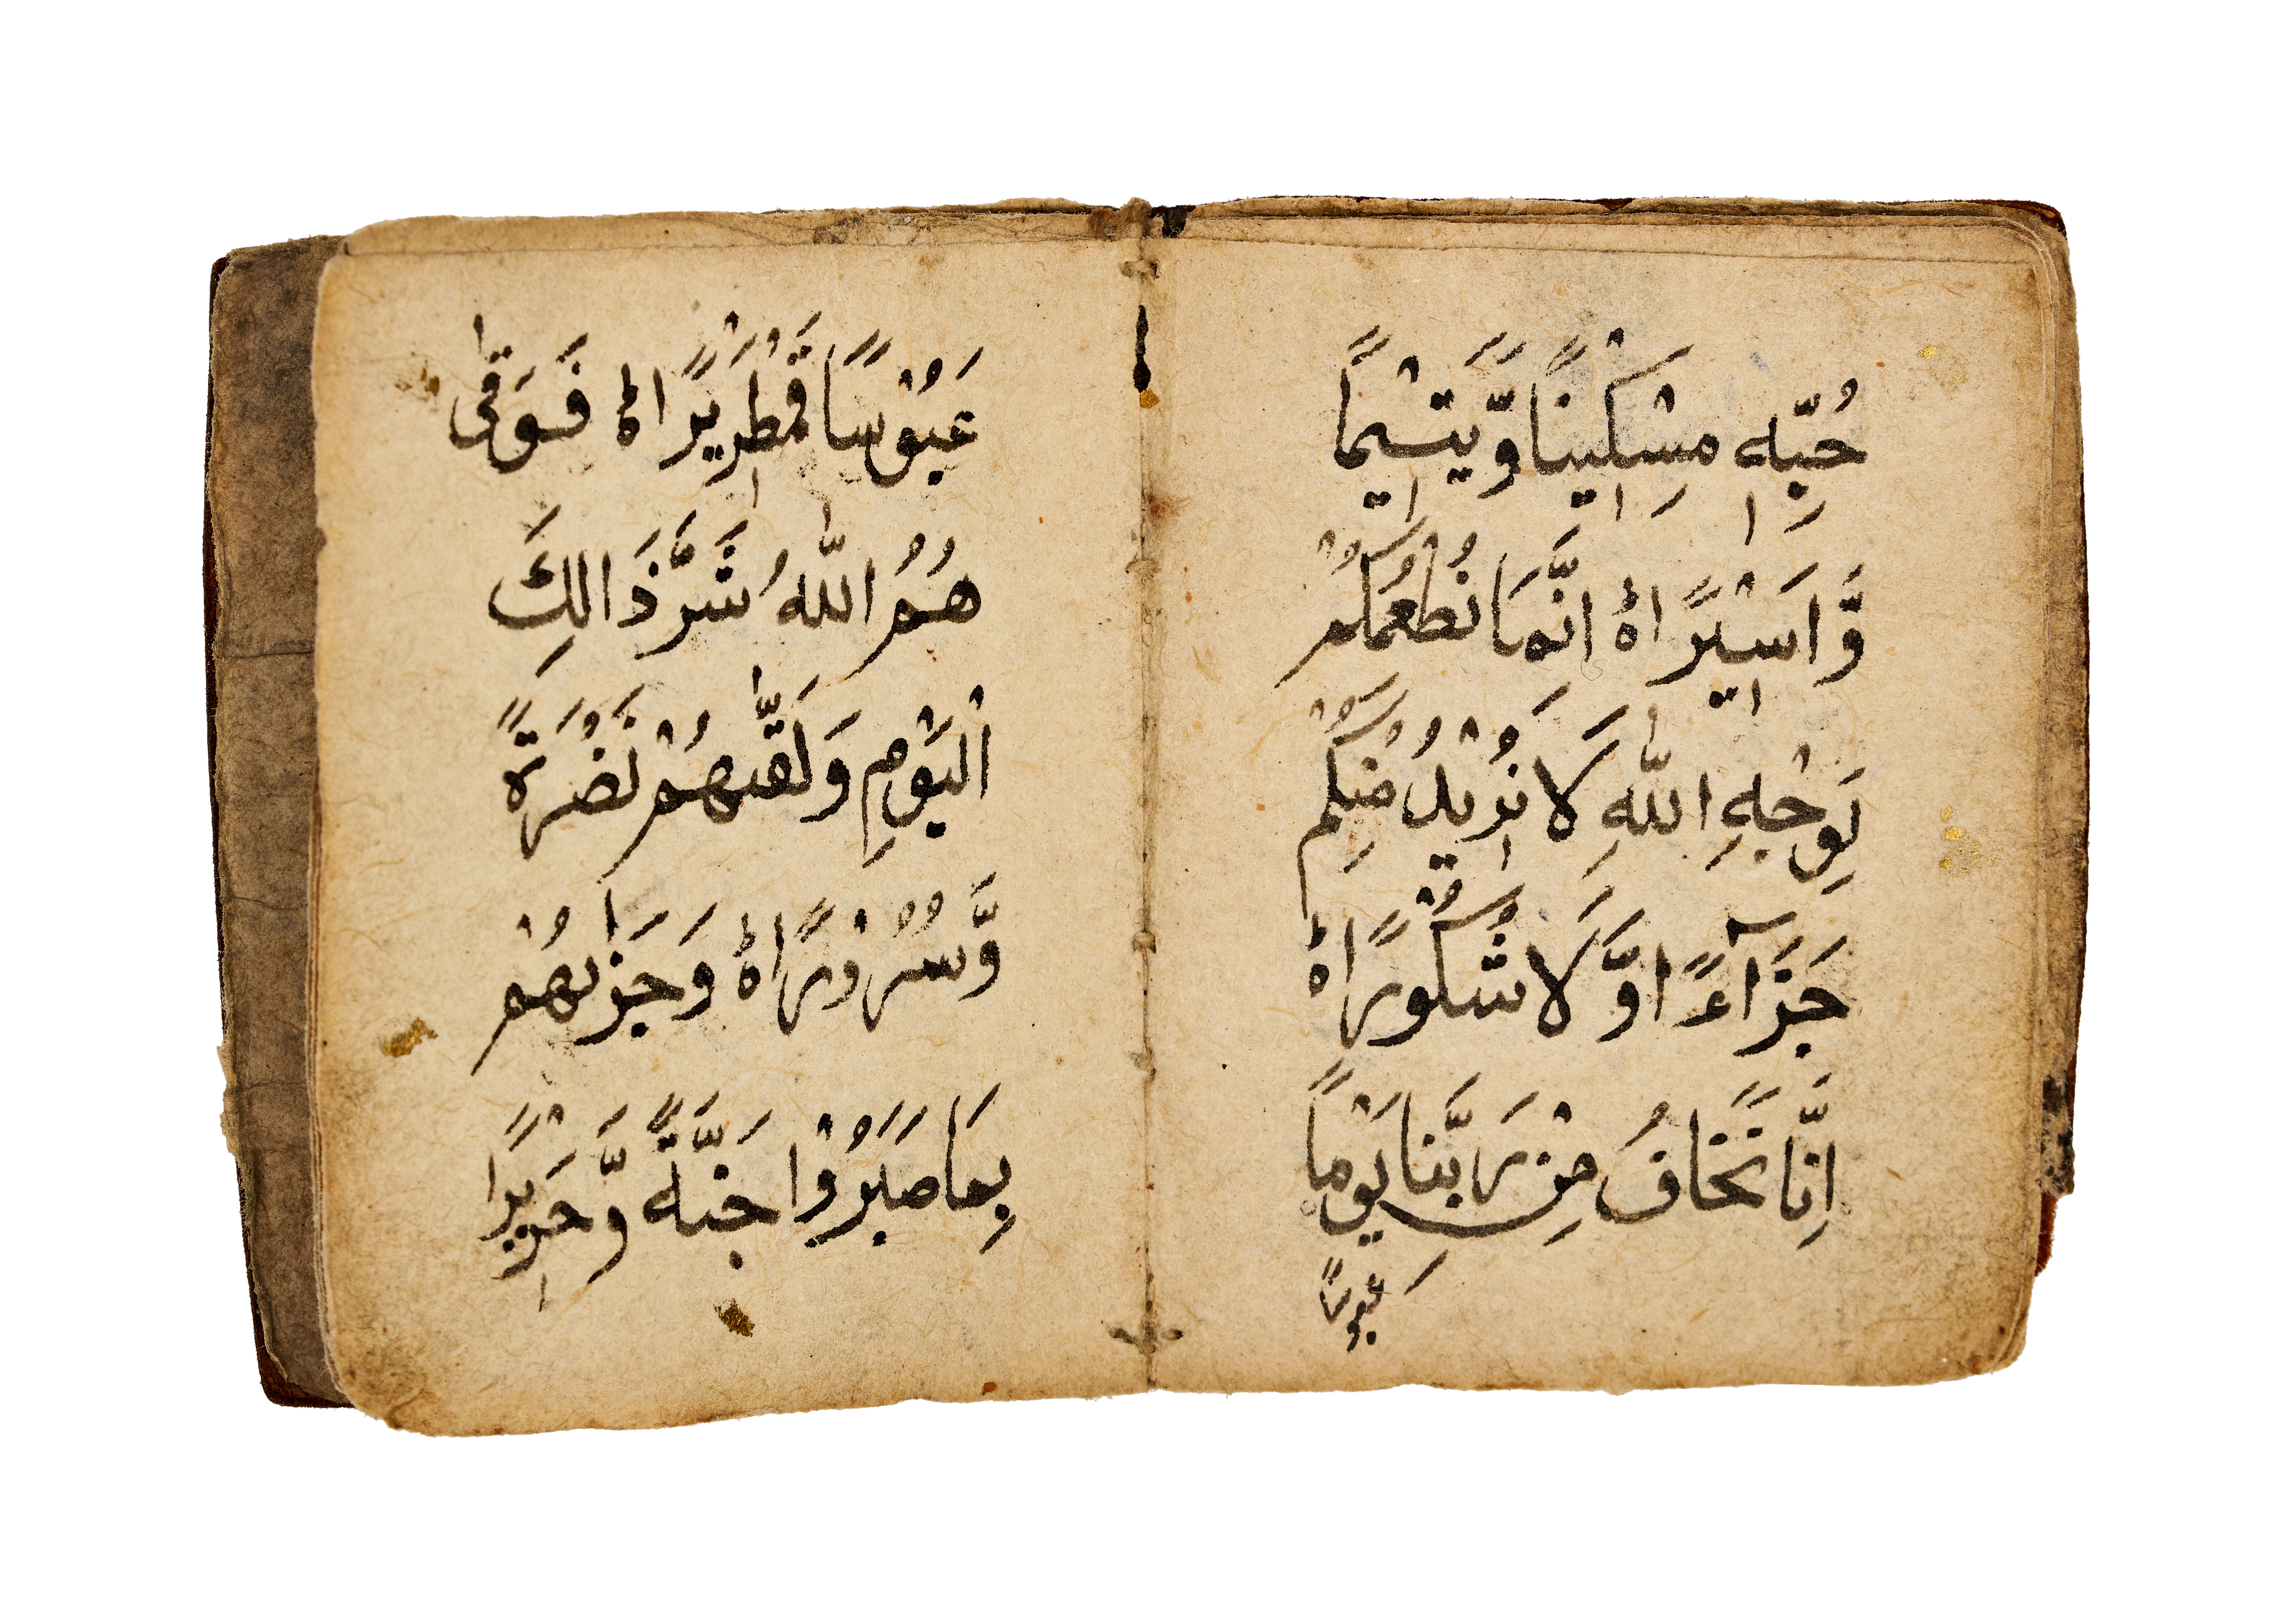 حُبِّهٖ مِسْكِيْنًا وَّيَتِيْمًا
وَّاَسِيْرًا ۝ اِنَّمَا نُطْعِمُكُمْ
لِوَجْهِ اللّٰهِ لَا نُرِيْدُ مِنْكُمْ
جَزَآءً اوَّلَا شُكُورًا ۝
اِنَّا نَخَافُ مِنْ رَبِّنَا يَوْمًا
عَبُوسًا
عَبُوْسًا قَمْطَرِيْرًا ۝ فَوَقٰى
هُمُ اللّٰهُ شَرَّ ذَالِكَ
الْيَوْمِ وَلَقّٰىهُمْ نَضْرَةً
وَّسُرُوْرًا ۝ وَجَزٰىهُمْ
بِمَا صَبَرُوْا جَنَّةً وَّحَرِيْرًا